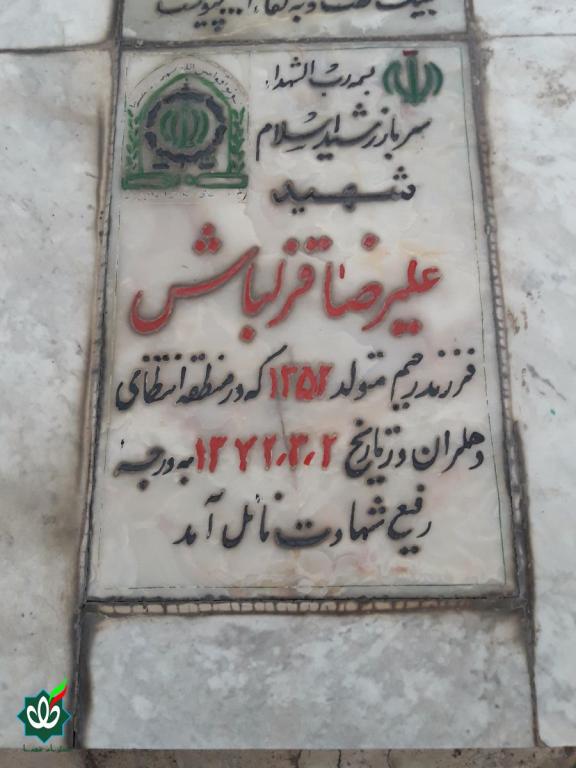 بسمه رب الشهداء
سرباز رشید اسلام
شهید
علیرضا قزلباش
فرزند رحیم متولد ۱۳۵۲ که در منطقه انتظامی
دهلران در تاریخ ۱۳۷۲٫۳٫۲ به درجه
رفیع شهادت نائل آمد